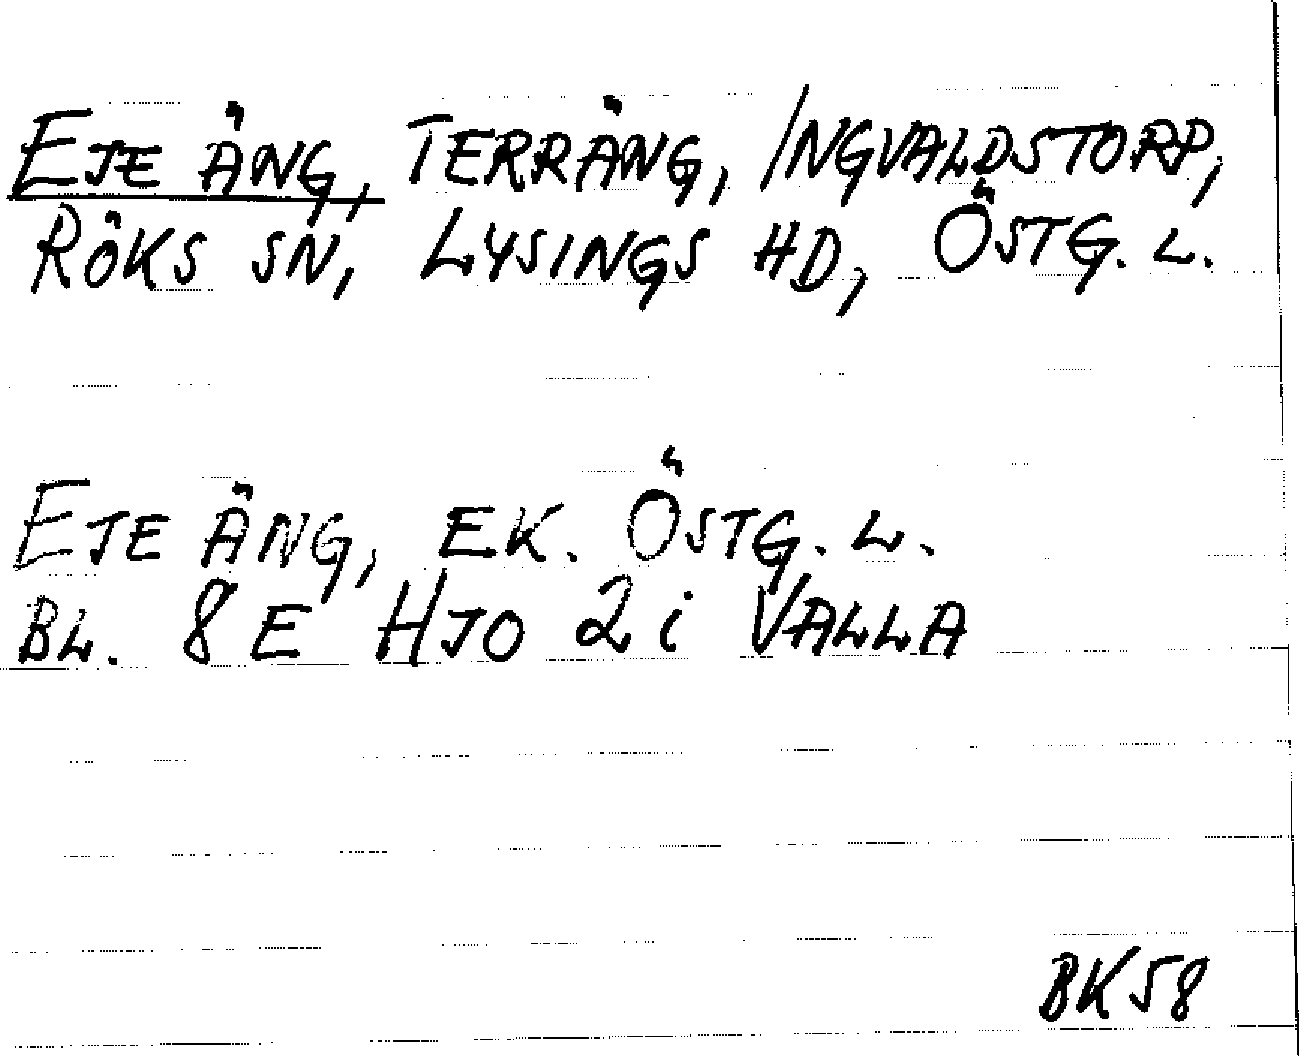 EJE ÄNG, TERRÄNG, INGVALDSTORP,
RÖKS SN, LYSINGS HD, ÖSTG. L.
EJE ÄNG, EK. ÖSTG. L.
BL. 8 E HJO 2 i VALLA
BK58